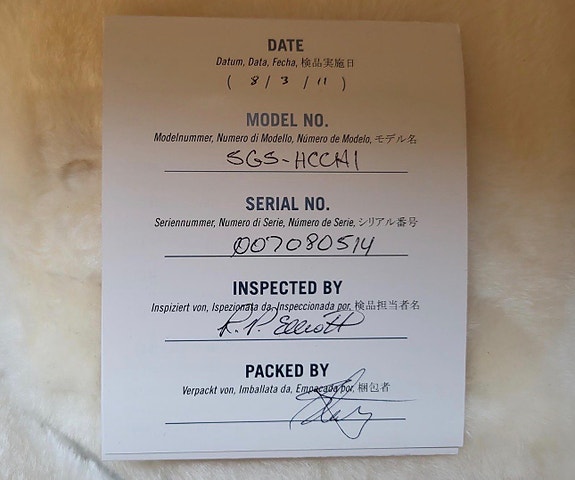 DATE
Datum, Data, Fecha, 検品実施日
( 8 / 3 / 11 )
MODEL NO.
Modelnummer, Numero di Modello, Número de Modelo, モデル名
SGS-HCCA1
SERIAL NO.
Seriennummer, Numero di Serie, Número de Serie, シリアル番号
007080514
INSPECTED BY
Inspiziert von, Ispezionata da, Inspeccionada por, 検品担当者名
R.P. Elliott
PACKED BY
Verpackt von, Imballata da, Empacada por, 梱包者